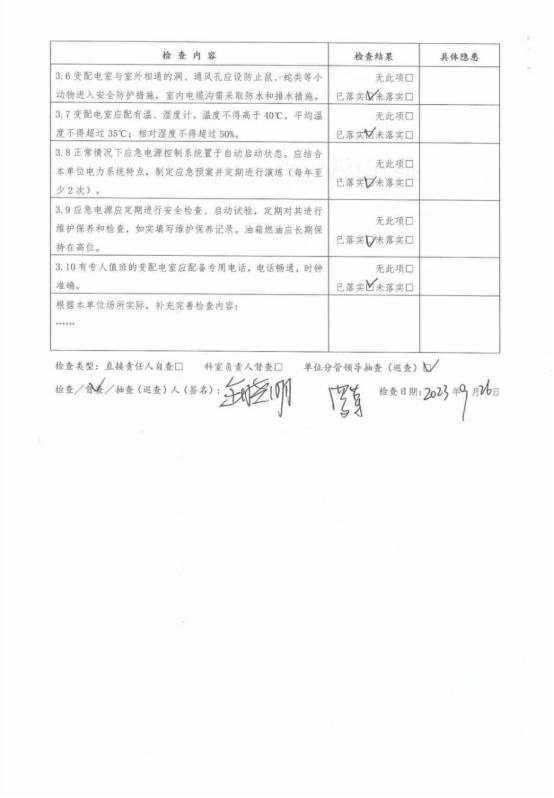 检查内容 检查结果 具体隐患
3.6 变配电室与室外相通的洞、通风孔应设防止鼠、蛇类等小 无此项□
动物进入安全防护措施，室内电缆沟需采取防水和排水措施。 已落实☑未落实□
3.7 变配电室应配有温、湿度计。温度不得高于 40℃，平均温 无此项□
度不得超过 35℃；相对湿度不得超过 50%。 已落实☑未落实□
3.8 正常情况下应急电源控制系统置于自动启动状态。应结合 无此项□
本单位电力系统特点，制定应急预案并定期进行演练（每年至 已落实☑未落实□
少 2 次）。
3.9 应急电源应定期进行安全检查、启动试验，定期对其进行 无此项□
维护保养和检查，如实填写维护保养记录。油箱燃油应长期保 已落实☑未落实□
持在高位。
3.10 有专人值班的变配电室应配备专用电话，电话畅通，时钟 无此项□
准确。 已落实☑未落实□
根据本单位场所实际，补充完善检查内容：
……
检查类型：直接责任人自查□ 科室负责人督查□ 单位分管领导抽查（巡查）☑
检查／督查／抽查（巡查）人（签名）： 检查日期：2023 年 9 月 26 日